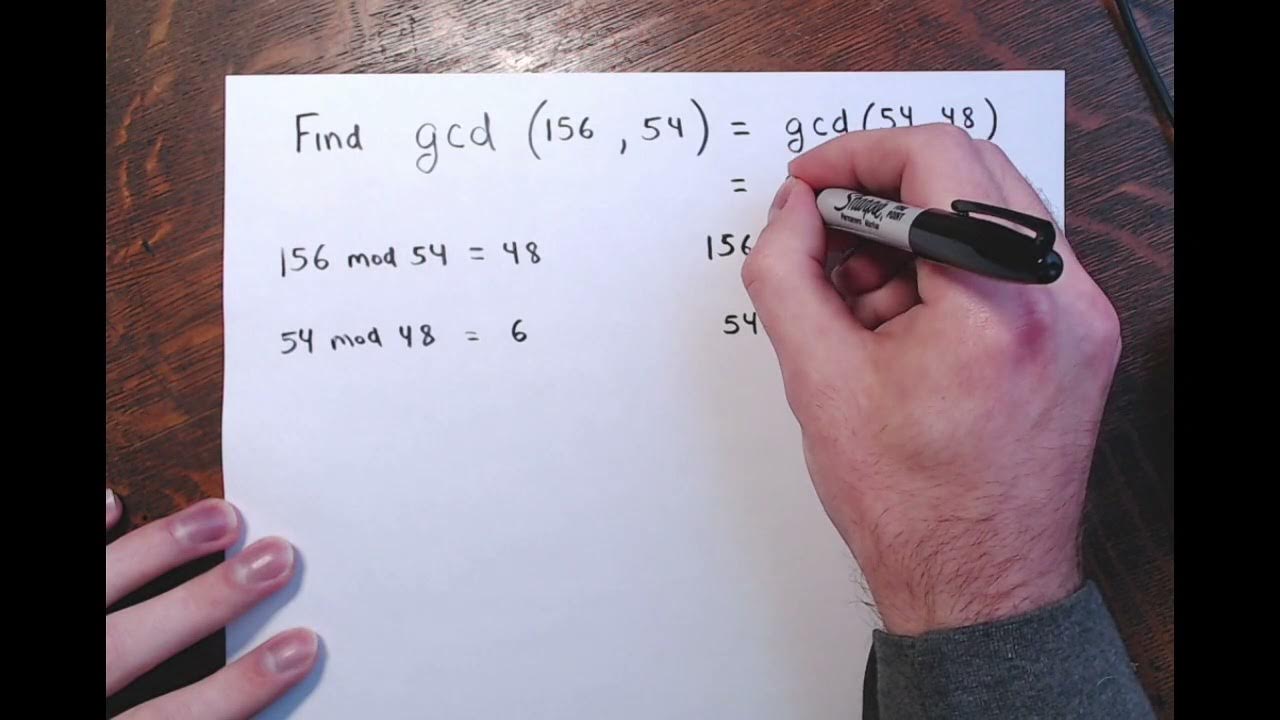 Find gcd (156 , 54) = gcd (54 48)
=
156 mod 54 = 48
156
54 mod 48 = 6
54
Sharpie
FINE POINT
Permanent Marker